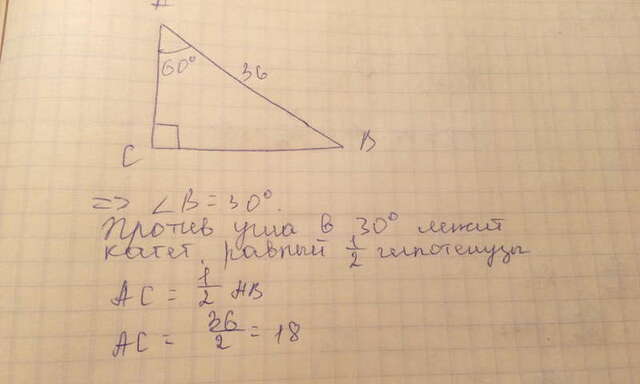 A
60°
36
C
B
=> ∠B = 30°.
Против угла в 30° лежит
катет, равный 1/2 гипотенузы
AC = 1/2 AB
AC = 36/2 = 18